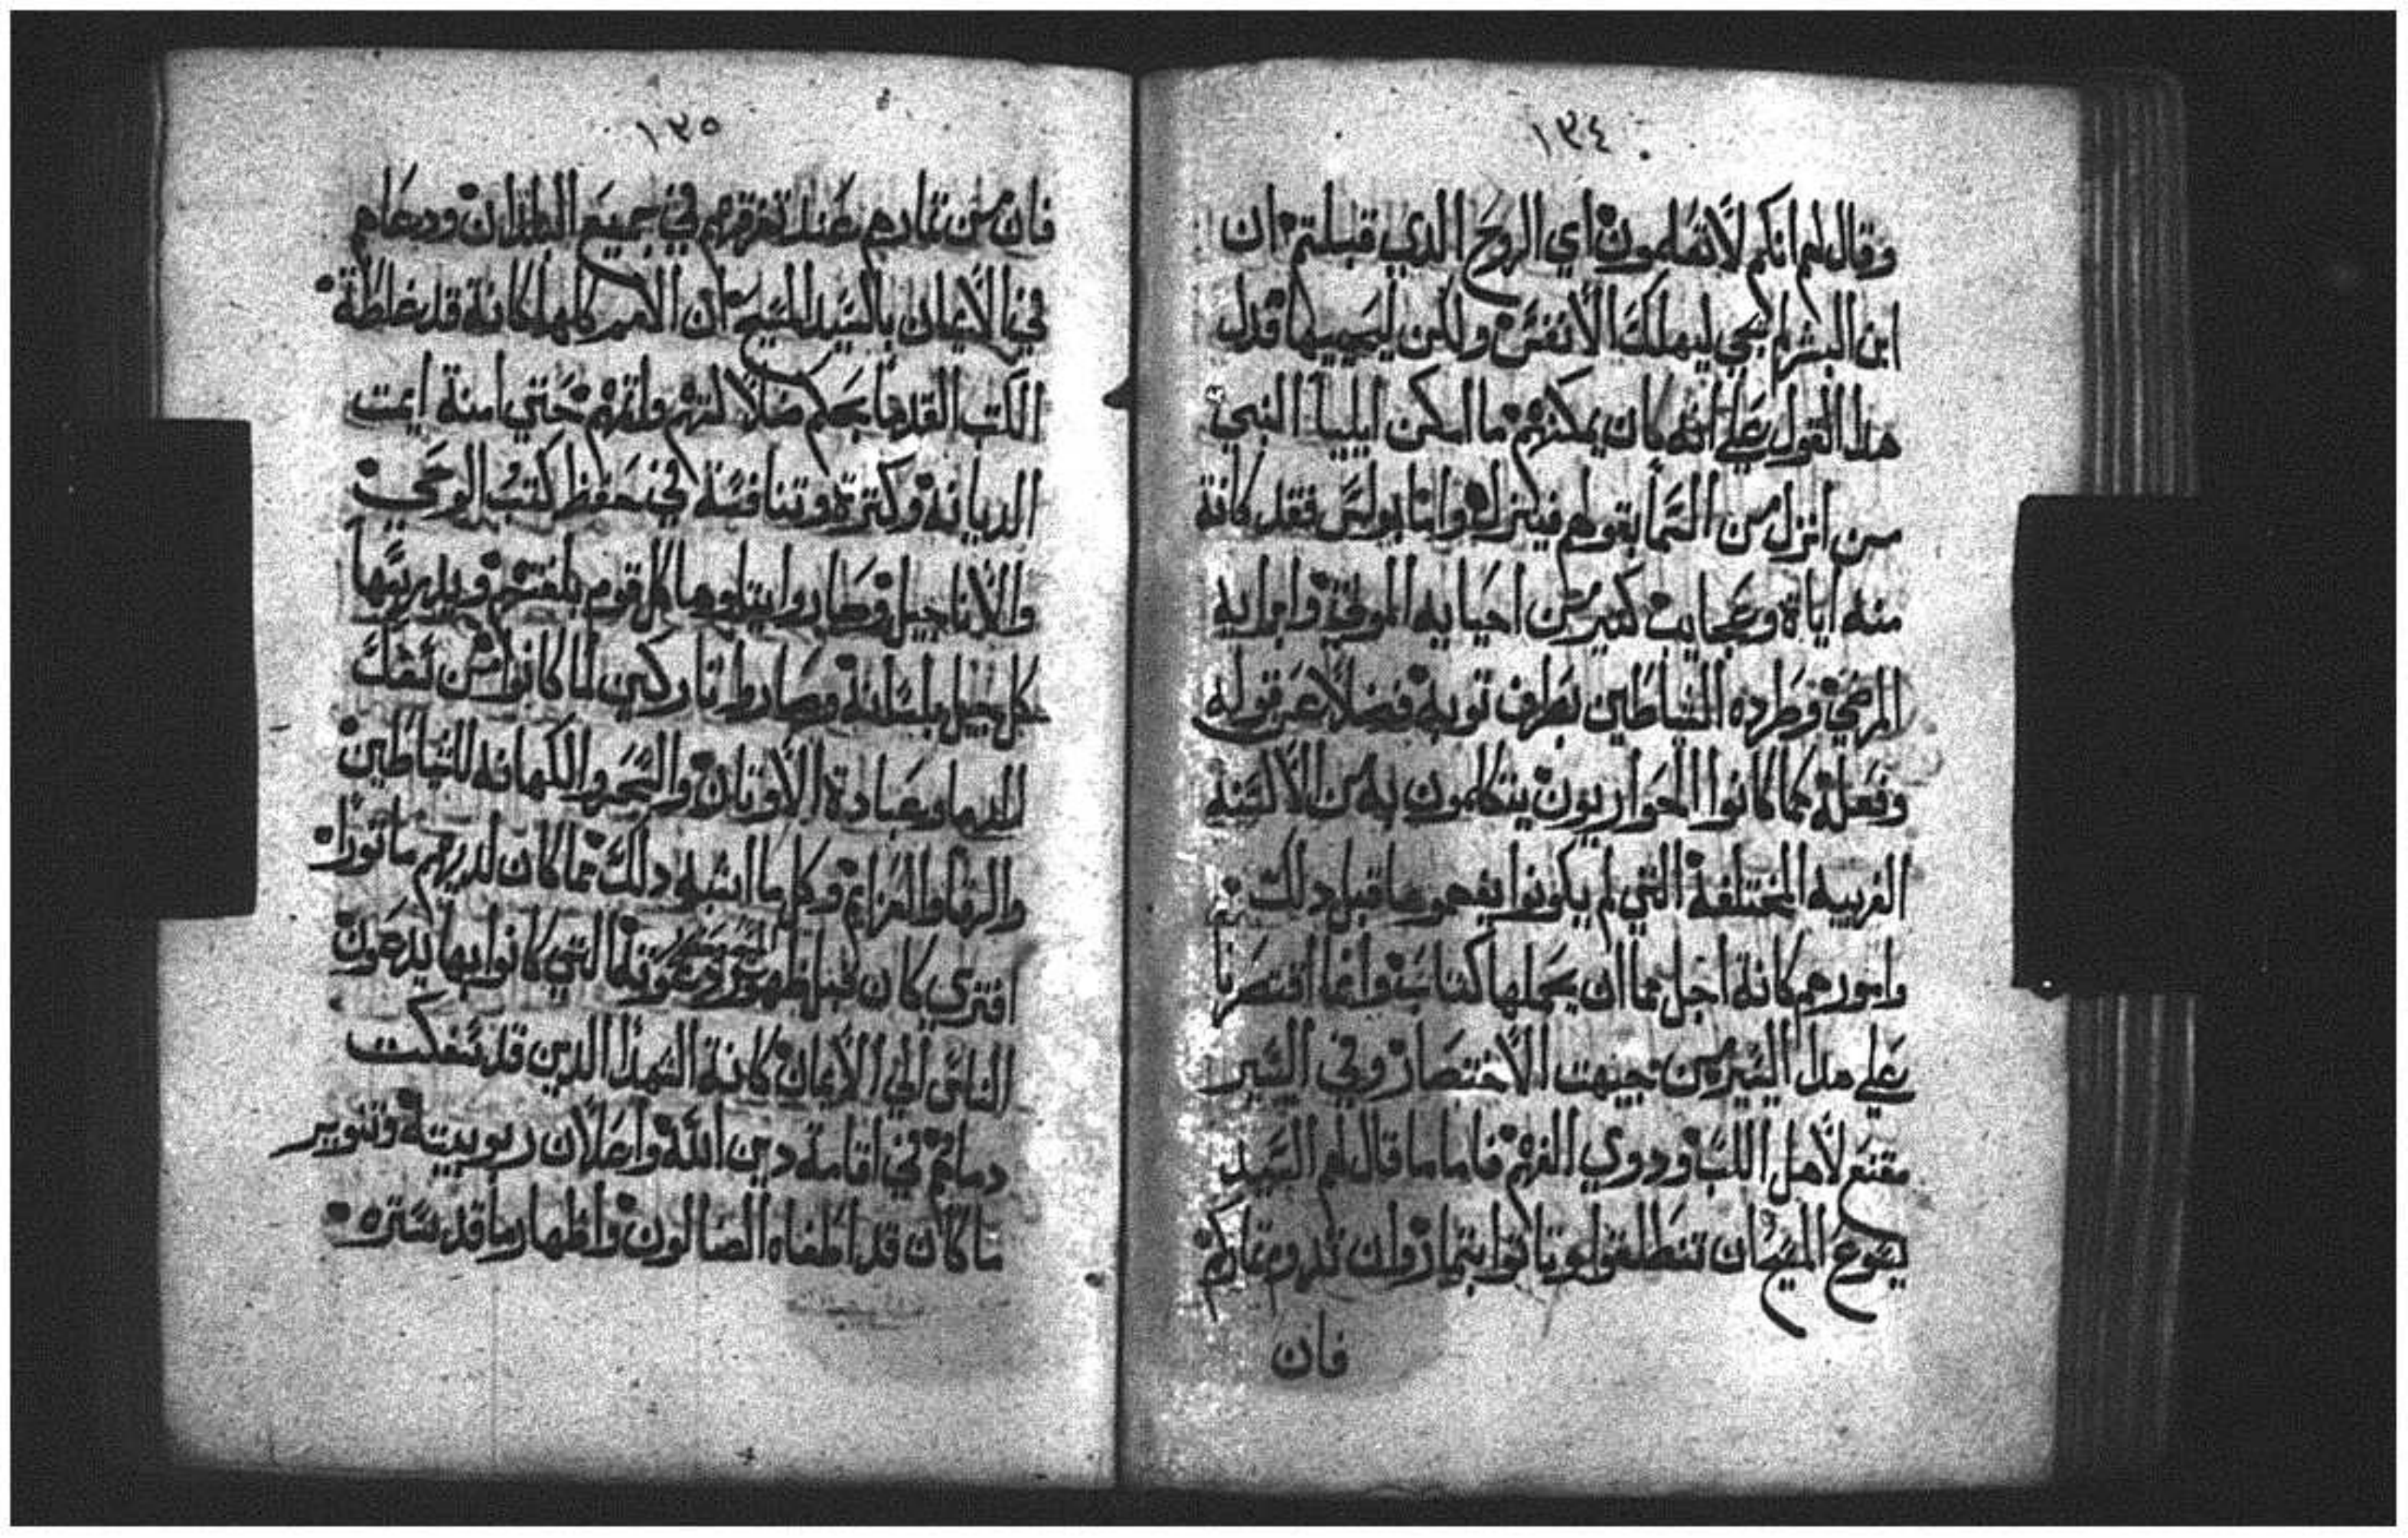 ١٣٤
وقال لهم انكم لا تعلمون اي الروح الدي قبلتم ان
ابن البشر لم يجي ليهلك الانفس ولكن ليحييها فدل
هدا القول علي انه كان يمكنهم ما امكن ايليا النبي
من انزل من السما بقولهم فيكنزله واما بولس فقد كانة
منه اياة وعجايب كثير من احيايه الموتي وابرايه
المرضي وطرده الشياطين بطرف توبه فضلا عن قوله
وفعله كما كانوا الحواريون يتكلمون به من الالسنه
الغريبه المختلفة التي لم يكونوا يفهموها قبل دلك
وامورهم كانة اجل مما ان يحملها كتاب وانما اقتصرنا
علي هدا اليسير من جيهت الاختصار وفي اليسير
مقنع لاهل اللب ودوي الفهم فاما ما قال لهم السيد
يسوع المسيح ان تنطلقوا وتاتوا بتمار وان تدوم تماركم
فان
١٣٥
فان من تمارهم عند تفرقهم في جميع البلدان ودعاهم
في الايمان بالسيد المسيح ان الامم كلها كانة قد غلطة
الكتب القدما بحكم ضلالتهم وانهم حتي امنة ايمت
الديانة وكترة وتنافسة في حفظ كتب الوحي
والاناجيل وصاروا يتلوها كل قوم بلغتهم ويدرسها
كل جيل بلسانة وصاروا تاركين لما كانوا من سفك
الدما وعبادة الاوتان والسحر والكهانه للشياطين
والرقا والعزايم وكل ما اشبه دلك مما كان لديهم ماتورا
افتري كان قبل ظهور المسيح ودعوته التي كانوا بها يدعون
الناس الي الايمان كانة الشهدا الدين قد سفكت
دماهم في اقامة دين الله واعلان ربوبيتة وتنوير
ما كان قد اطفاه الضالون واظهار ما قد ستره